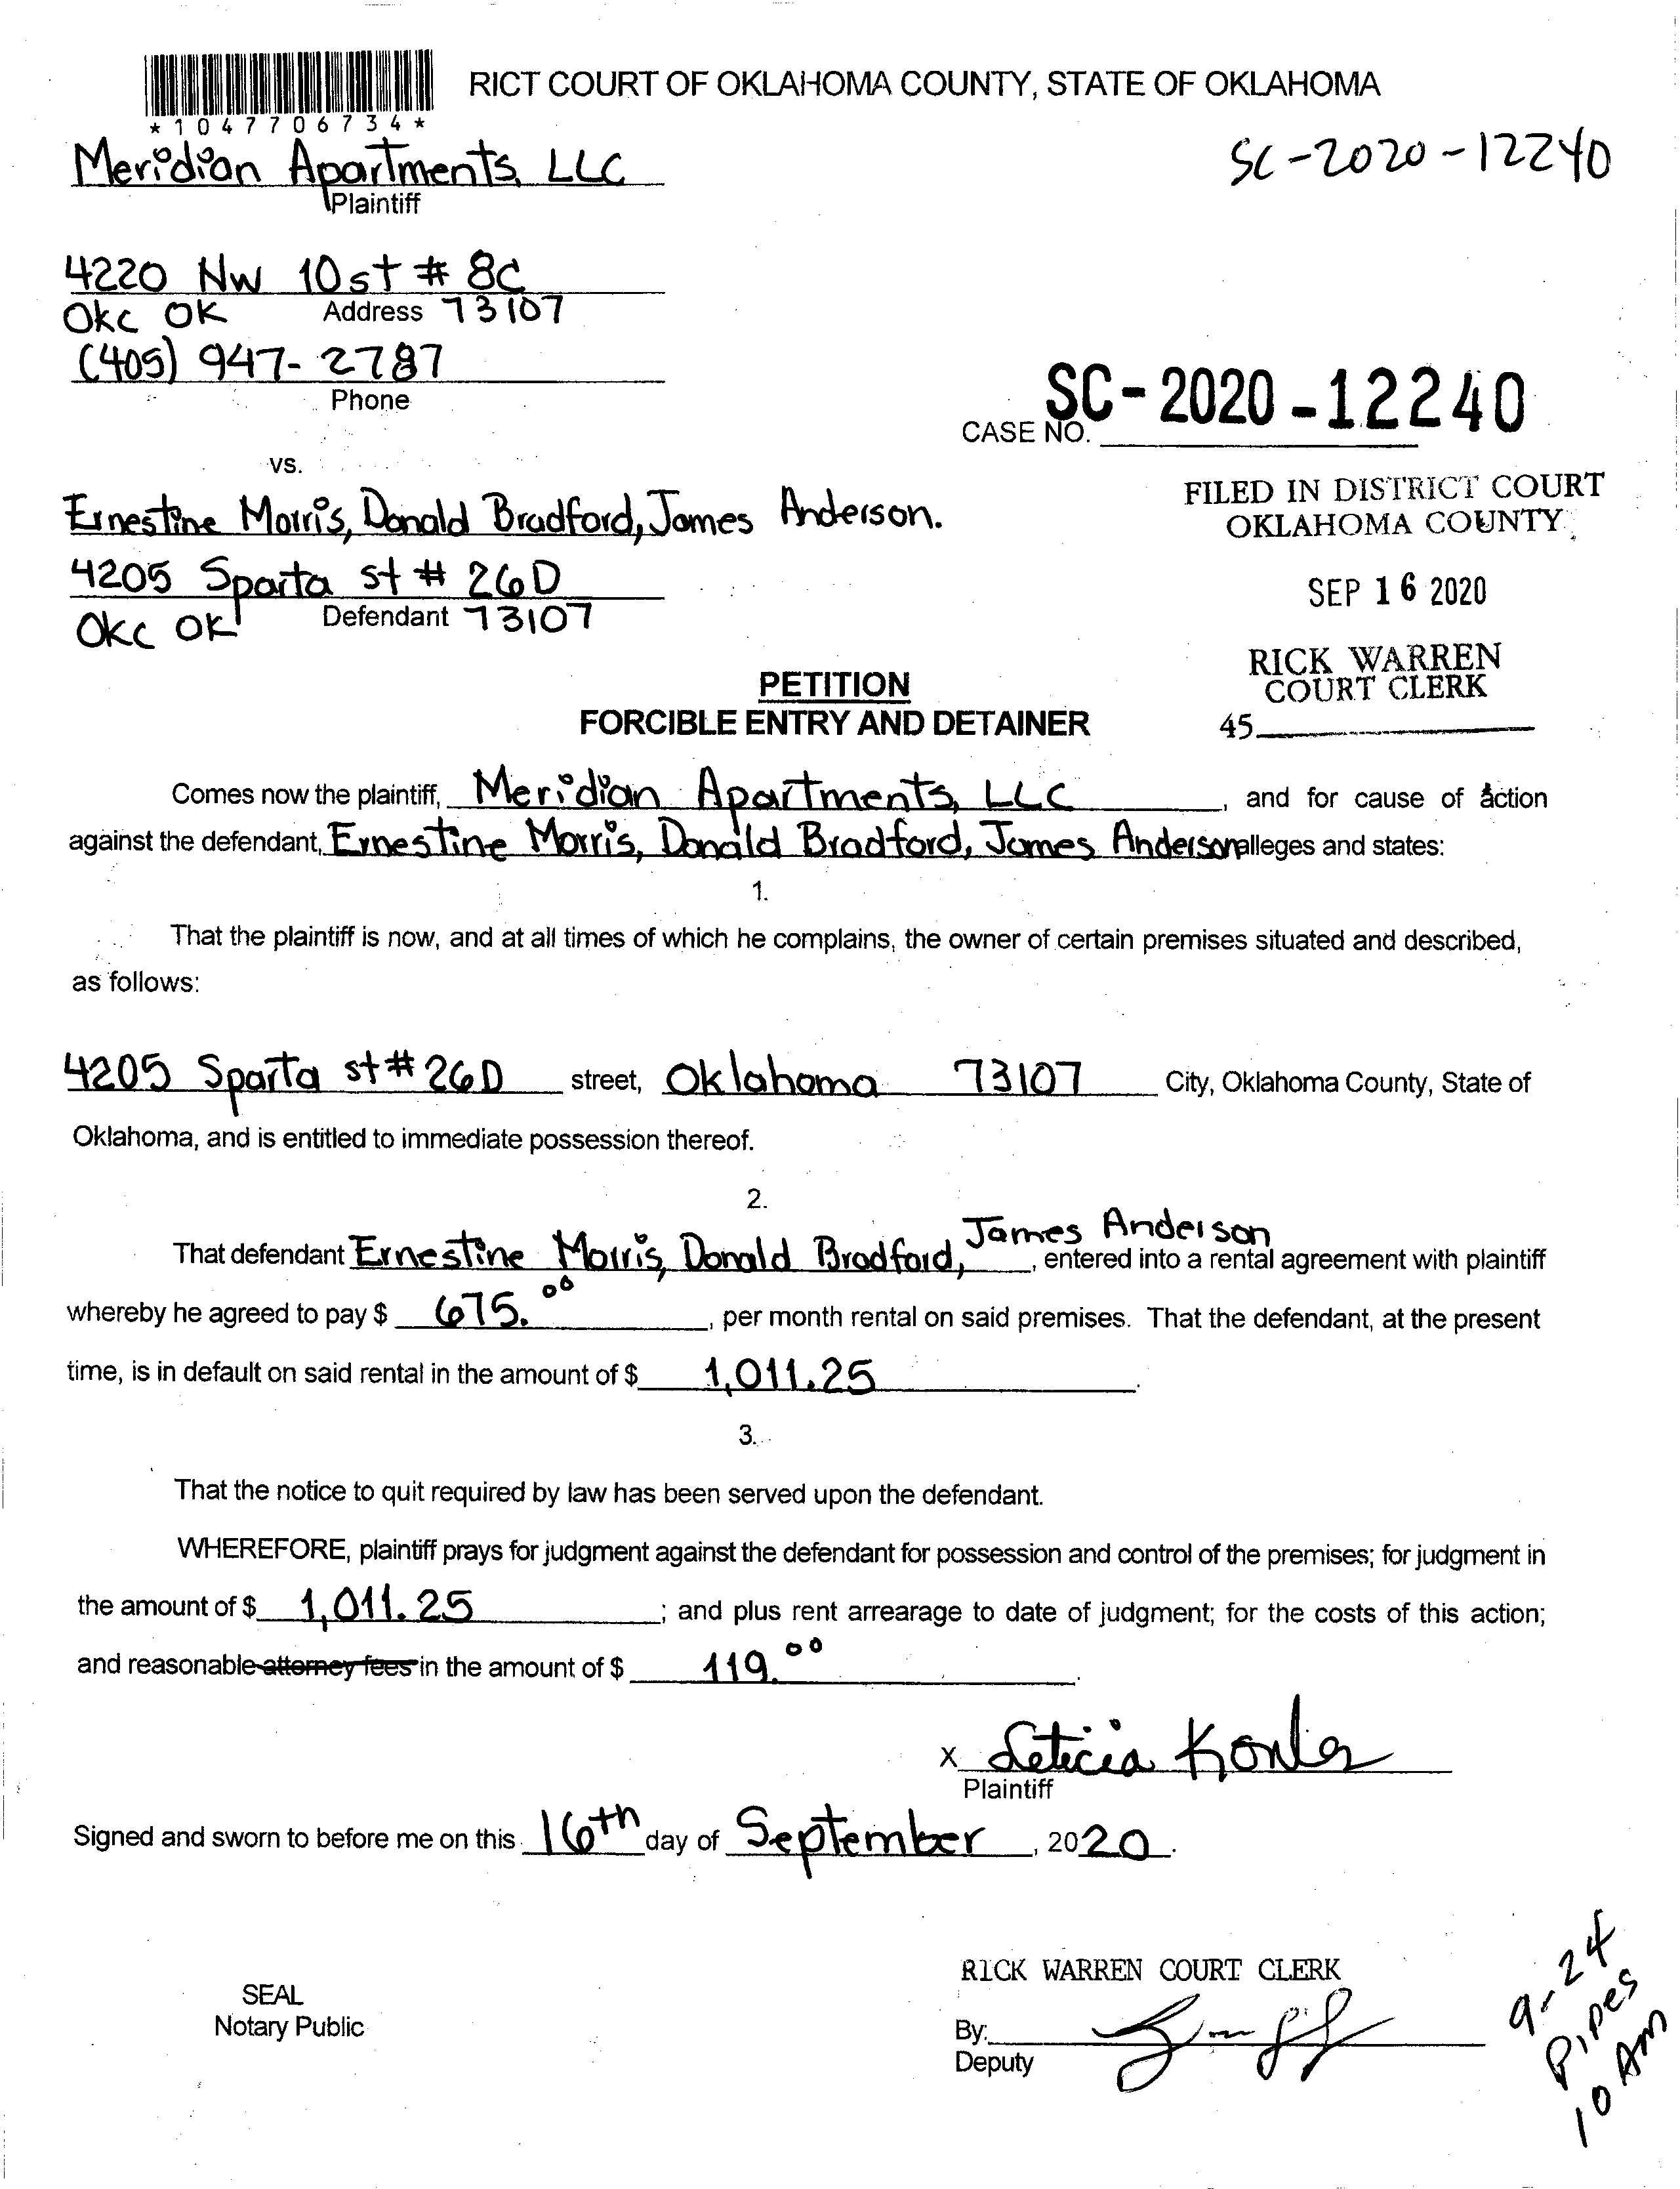 RICT COURT OF OKLAHOMA COUNTY, STATE OF OKLAHOMA
*1047706734*
Meridian Apartments, LLC
Plaintiff
SC-2020-12240
4220 NW 10st # 8C
Address
Okc OK 73107
(405) 947-2787
Phone
CASE NO. SC-2020-12240
vs.
FILED IN DISTRICT COURT
OKLAHOMA COUNTY
Ernestine Morris, Donald Bradford, James Anderson.
4205 Sparta st # 26D
SEP 16 2020
Defendant
Okc OK 73107
RICK WARREN
COURT CLERK
45
PETITION
FORCIBLE ENTRY AND DETAINER
Comes now the plaintiff, Meridian Apartments, LLC, and for cause of action
against the defendant, Ernestine Morris, Donald Bradford, James Anderson alleges and states:
1.
That the plaintiff is now, and at all times of which he complains, the owner of certain premises situated and described,
as follows:
4205 Sparta st # 26D street, Oklahoma 73107 City, Oklahoma County, State of
Oklahoma, and is entitled to immediate possession thereof.
2.
That defendant Ernestine Morris, Donald Bradford, James Anderson, entered into a rental agreement with plaintiff
whereby he agreed to pay $ 675.00, per month rental on said premises. That the defendant, at the present
time, is in default on said rental in the amount of $ 1,011.25.
3.
That the notice to quit required by law has been served upon the defendant.
WHEREFORE, plaintiff prays for judgment against the defendant for possession and control of the premises; for judgment in
the amount of $ 1,011.25; and plus rent arrearage to date of judgment; for the costs of this action;
and reasonable attorney fees in the amount of $ 119.00.
x Leticia
Plaintiff
Signed and sworn to before me on this 16th day of September, 2020.
RICK WARREN COURT CLERK
SEAL
Notary Public
By:
Deputy
9-24
Pipes
10 Am